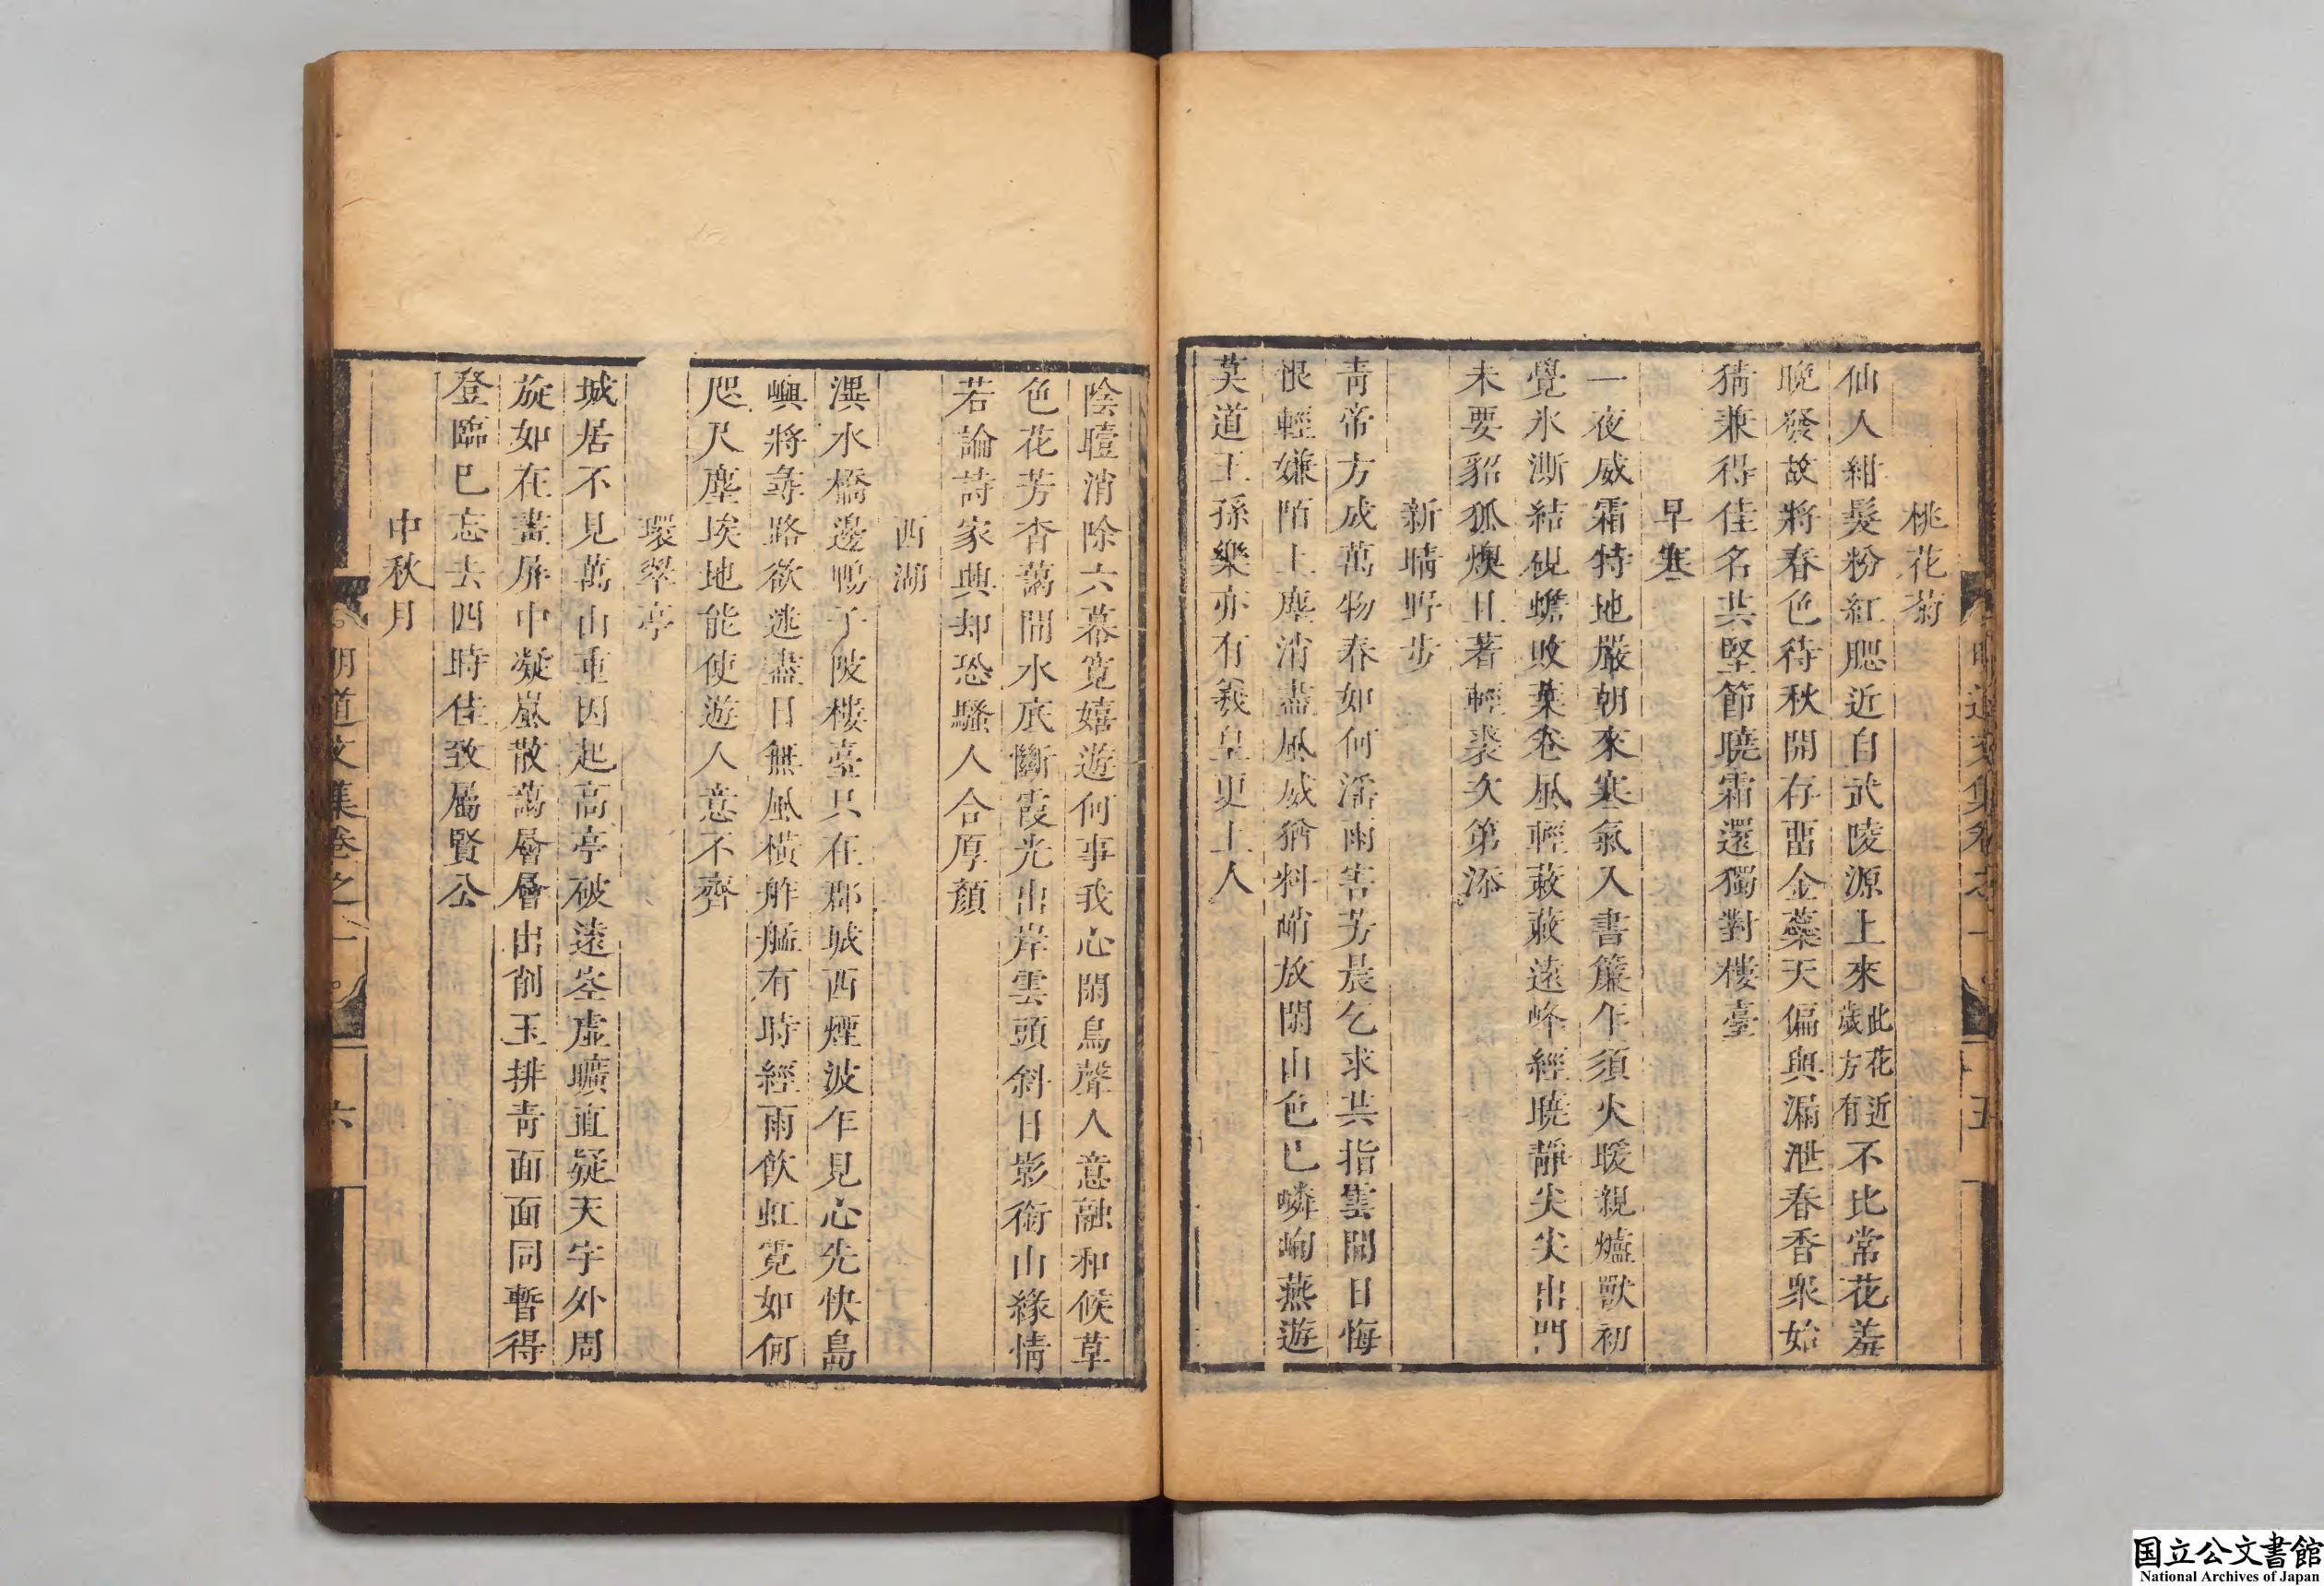 桃花菊
仙人紺髮粉紅腮近自武陵源上來此花近歲方有不比常花羞
晩發故將春色待秋開存畱金蘂天偏與漏泄春香衆始
猜兼得佳名共堅節曉霜還獨對樓臺
早寒
一夜威霜特地嚴朝來寒氣入書簾乍須火暖親爐獸初
覺氷澌結硯蟾敗葉卷風輕蔌蔌遠峰經曉靜尖尖出門
未要貂狐燠且著輕裘次第添
新晴野步
青帝方成萬物春如何淫雨害芳晨乞求共指雲開日悔
恨輕嫌陌上塵消盡風威猶料峭放開山色已嶙峋燕遊
莫道王孫樂亦有羲皇更上人
陰曀消除六幕寛嬉遊何事我心閑鳥聲人意融和候草
色花芳杳藹間水底斷霞光出岸雲頭斜日影銜山緣情
若論詩家興却恐騷人合厚顔
西湖
潩水橋邊鴨子陂樓臺只在郡城西煙波乍見心先快島
嶼將尋路欲迷盡日無風橫舴艋有時經雨飲虹霓如何
咫尺塵埃地能使遊人意不齊
環翠亭
城居不見萬山重因起高亭破遠空虛曠直疑天宇外周
旋如在畫屏中凝嵐散藹層層出削玉排青面面同暫得
登臨已忘去四時佳致屬賢公
中秋月
明道文集卷之一
六
明道文集卷之一
五
国立公文書館
National Archives of Japan